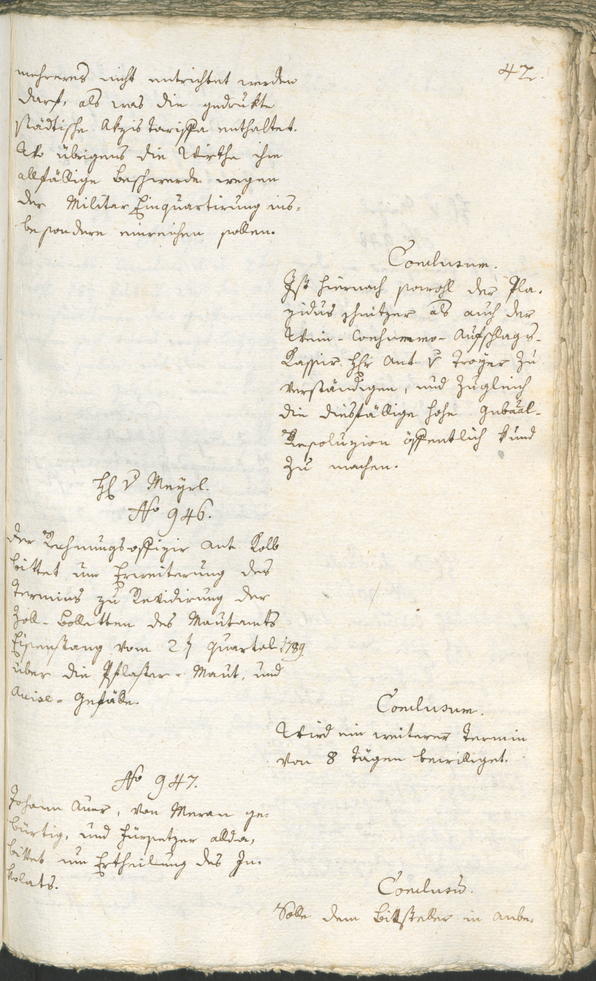 42.
mehreres nicht entrichtet werden
darf, als was die gedrukte
städtische Akzis tariffa enthaltet.
Wo übrigens die Wirthe ihre
allfällige Beschwerde wegen
der Militar Einquartirung ins-
besondere einreichen sollen.
Conclusum.
Ist hiernach sowohl der Pla-
zidus schnitzer als auch der
Wein-Consummo-Aufschlags-
Kassir Hr Ant. v Troyer zu
verständigen, und zugleich
die diesfällige hohe Gubãal-
Resoluzion öffentlich kund
zu machen.
H v Meyrl.
No 946.
Der Rechnungsoffizir Ant. Kolb
bittet um Erweiterung des
Termins zu Revidirung der
Zoll-Bolletten des Mautamts
Eisenstang vom 2t Quartal 1789
über die Pflaster-Maut, und
Accise-Gefälle.
Conclusum.
Wird ein weiterer Termin
von 8 tägen bewilliget.
No 947.
Johann Auer, von Meran ge-
bürtig, und fürsetzer allda,
bittet um Ertheilung des In-
kolats.
Conclusũ.
Solle dem Bittsteller in Anbe-